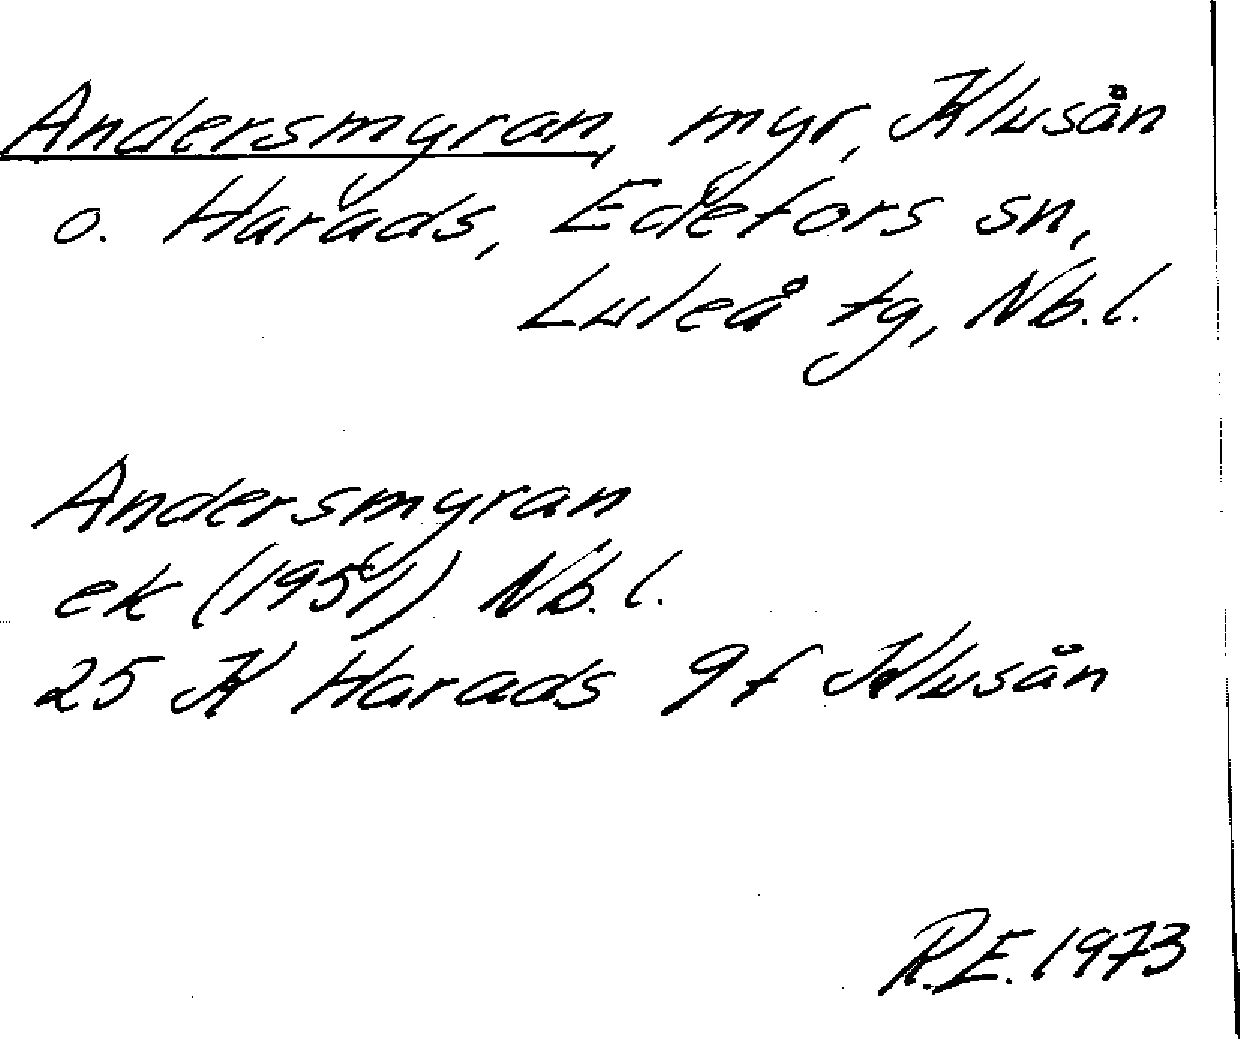 Andersmyran, myr, Klusån
o. Harads, Edefors sn,
Luleå tg, Nb.l.
Andersmyran
ek (1951) Nb.l.
25 K Harads 9f Klusån
R.E. 1973